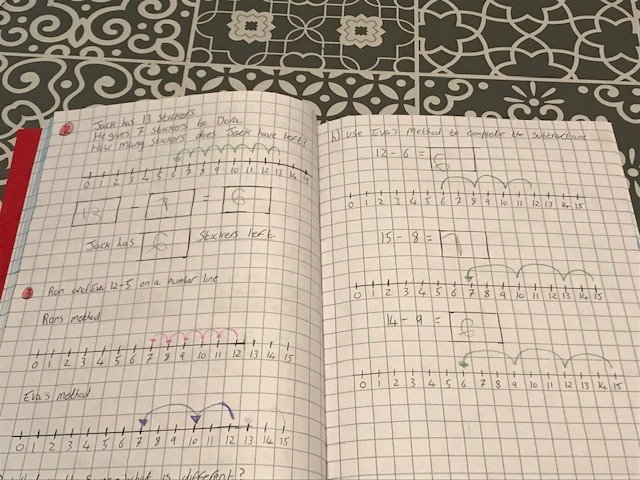 2
Jack has 13 Stickers
He gives 7 Stickers to Dora.
How many stickers does Jack have left?
0 1 2 3 4 5 6 7 8 9 10 11 12 13 14 15
13 - 7 = 6
Jack has 6 Stickers left.
3
Ron and Eva 12-5 on a number line
Rons method
0 1 2 3 4 5 6 7 8 9 10 11 12 13 14 15
Eva's method
0 1 2 3 4 5 6 7 8 9 10 11 12 13 14 15
what is different?
b) Use Eva's method to complete the subtractions
12 - 6 = 6
0 1 2 3 4 5 6 7 8 9 10 11 12 13 14 15
15 - 8 = 7
0 1 2 3 4 5 6 7 8 9 10 11 12 13 14 15
14 - 9 = 6
0 1 2 3 4 5 6 7 8 9 10 11 12 13 14 15